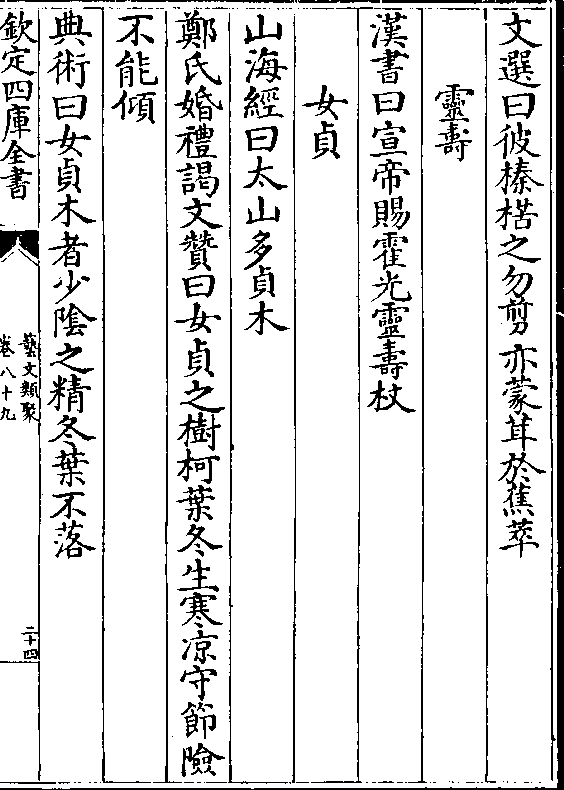 文選曰彼榛楛之勿剪亦蒙茸於蕉萃
靈壽
漢書曰宣帝賜霍光靈壽杖
女貞
山海經曰太山多貞木
鄭氏婚禮謁文贊曰女貞之樹柯葉冬生寒凉守節險
不能傾
典術曰女貞木者少陰之精冬葉不落
欽定四庫全書
藝文類聚
卷八十九
二十四